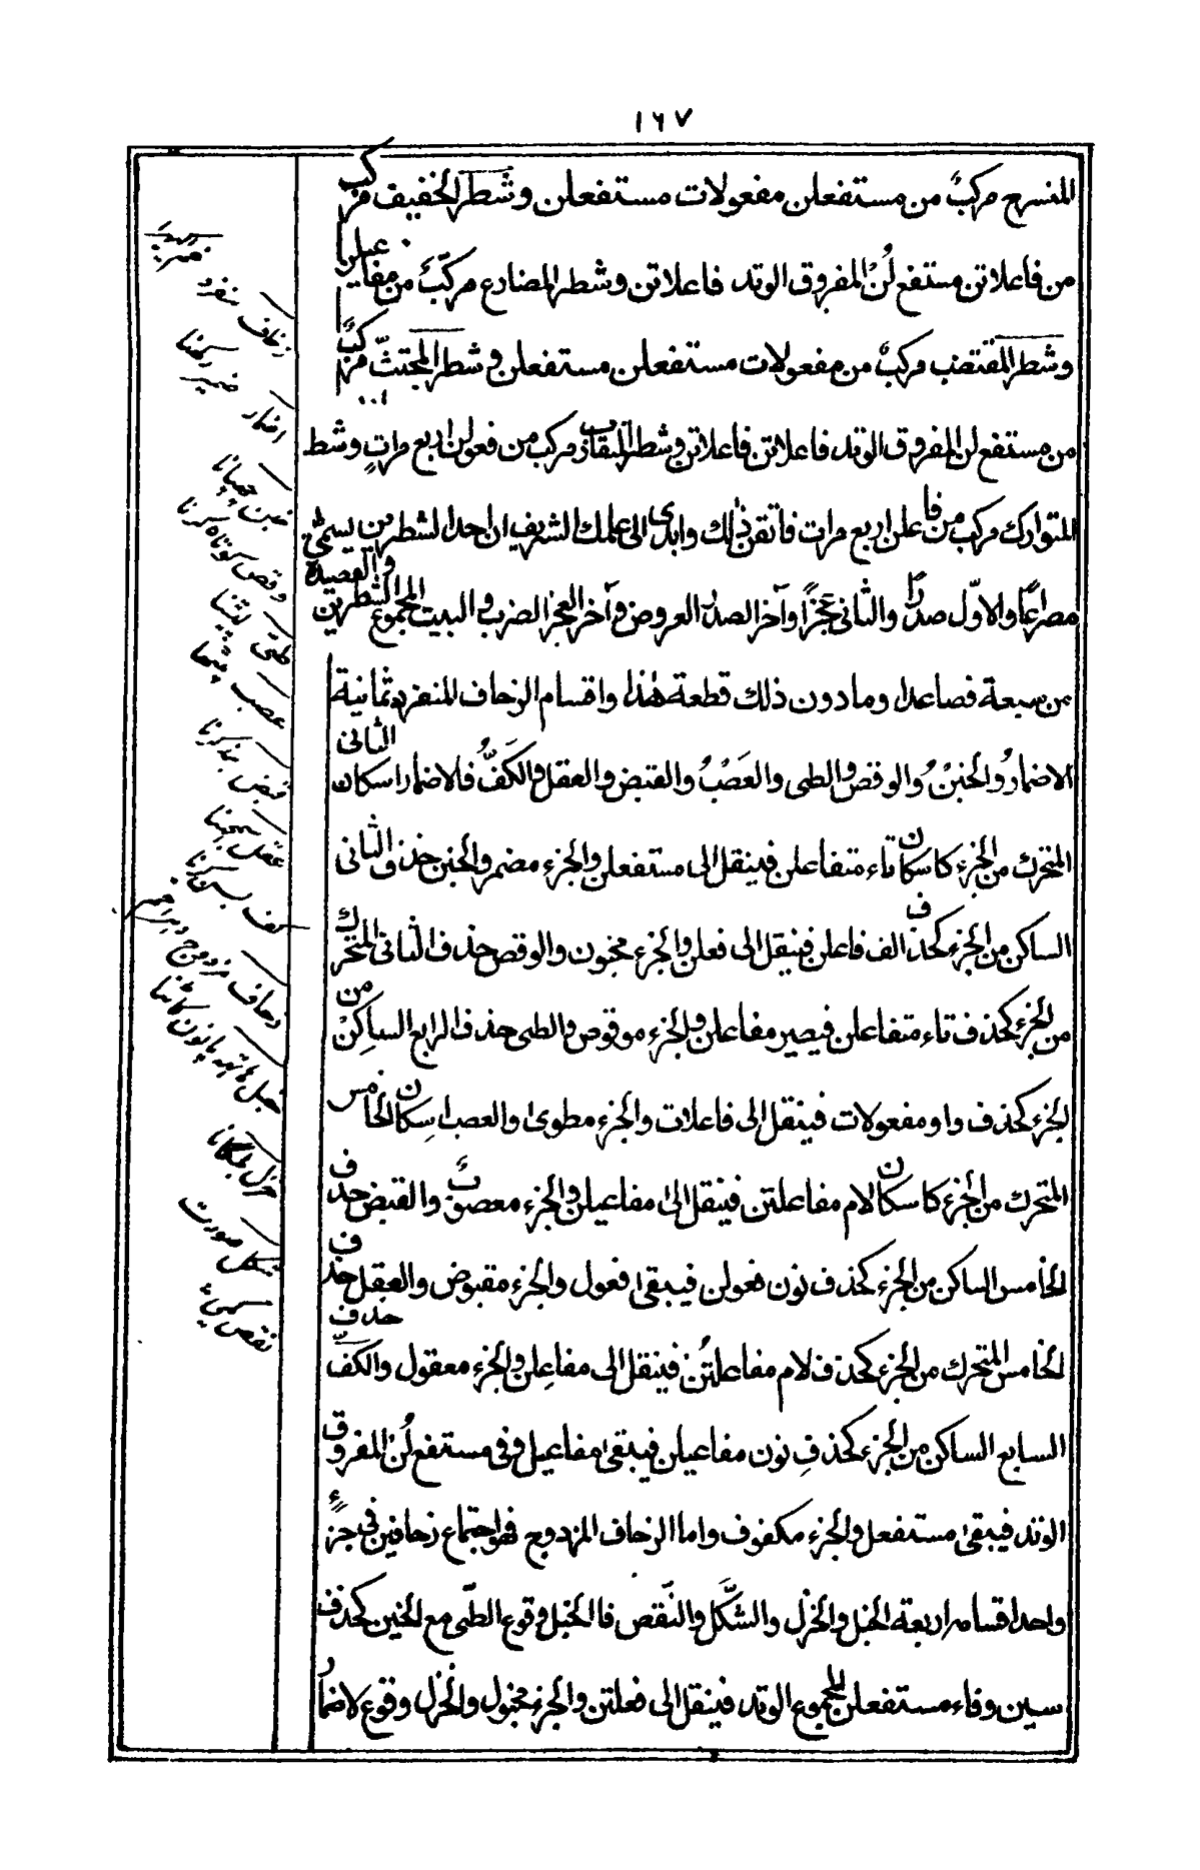 ١٦٧
المنسرح مركبٌ من مستفعلن مفعولات مستفعلن وشطر الخفيف مركب
من فاعلاتن مستفع لُنْ المفروق الوتد فاعلاتن وشطر المضارع مركّبٌ من مفاعيلن
وشطر المقتضب مركبٌ من مفعولات مستفعلن مستفعلن وشطر المجتثّ مركبٌ
من مستفع لن المفروق الوتد فاعلاتن فاعلاتن وشطر المتقارب مركب من فعولن اربع مراتٍ وشطر
المتوارك مركب من فاعلن اربع مرات فاتقن ذلك وابدى الى علمك الشريف ان احد الشطرين يسمّٰى
مصراعًا والاوّل صدرًا والثانى عجزًا وآخر الصدر العروض وآخر العجز الضرب والبيت المجموع الشطرين والقصيدة
من سبعة فصاعدا وما دون ذلك قطعة هٰذا واقسام الزحاف المنفرد ثمانية
الاضمارُ والخَبْنُ والوقص والطى والعَصْبُ والقبض والعقل والكَفُّ فالاضمار اسكان الثانى
المتحرك من الجزء كاسكان تاء متفاعلن فينقل الى مستفعلن والجزء مضمر والخبن حذف الثانى
الساكن من الجزء كحذف الف فاعلن فينقل الى فعلن والجزء مخبون والوقص حذف الثانى المتحرك
من الجزء كحذف تاء متفاعلن فيصير مفاعلن والجزء موقوص والطى حذف الرابع الساكِنْ من
الجزء كحذف واو مفعولات فينقل الى فاعلات والجزء مطوى والعصب اسكان الخامس
المتحرك من الجزء كاسكان لام مفاعلتن فينقل الىٰ مفاعيلن والجزء معصوبٌ والقبض حذف
الخامس الساكن من الجزء كحذف نون فعولن فيبقى فعول والجزء مقبوض والعقل حذف
الخامس المتحرك من الجزء كحذف لام مفاعلتُن فينقل الى مفاعِلن والجزء معقول والكفّ حذف
السابع الساكن من الجزء كحذفِ نون مفاعيلن فيبقىٰ مفاعيل وفى مستفع لُنْ المفروق
الوتد فيبقىٰ مستفعل والجزء مكفوف واما الزحاف المزدوج فهو اجتماع زحافين فى جزءٍ
واحد اقسامه اربعة الخبل والخزل والشَّكل والنَّقص فالخبل وقوع الطّى مع الخبن كحذف
سين وفاء مستفعلن المجموع الوتد فينقل الى فعلتن والجزء مخبول والخزل وقوع الاضمار
زحاف منفرد
اضمار
خبن چھپانا
وقص کوتاہ کرنا
طى لپیٹنا
عصب
قبض بند کرنا
عقل
کف
زحاف مزدوج
خبل
خزل
شکل صورت
نقص کمی